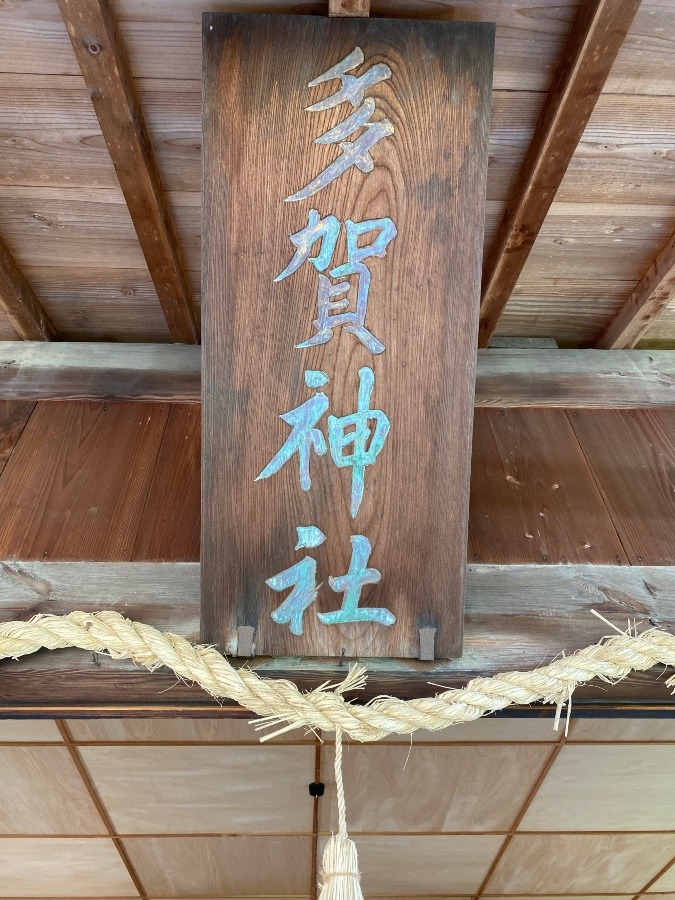 多賀神社